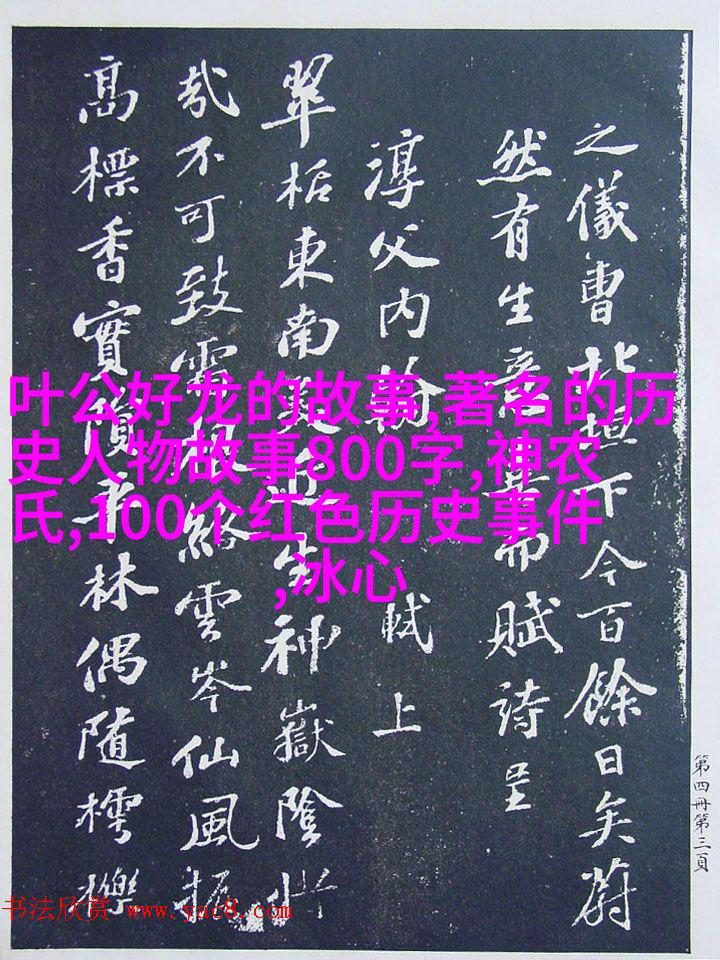 之儀曹北垣下今百餘日矣蔚
然有生意而賦詩呈
淳父内翰
軾上
翠栝東南美近生神嶽陰
哉不可致霜根絡雲岑仙風振
高標香實隕平林偶隨樗櫟
第四冊第三頁
叶公好龙的故事,著名的历
史人物故事800字,神农
氏,100个红色历史事件
,冰心
书法欣赏 www.yac8.com